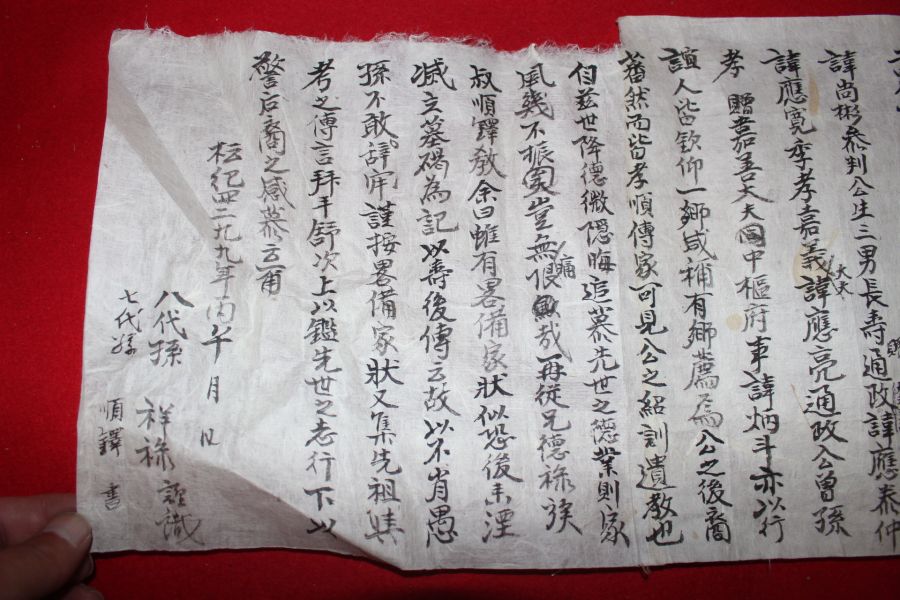 諱尚彬參判公生三男長壽通政諱應泰仲
諱應寬季孝嘉義大夫諱應亮通政公曾孫
孝贈嘉善大夫同中樞府事諱炳斗亦以行
誼人皆欽仰一鄉咸補有鄉薦為公之後裔
蕃然而皆孝順傳家可見公之紹訓遺教也
自茲世降德微隱晦追慕先世之德業則家
風幾不振图豈無恨痛哉再從兄德祿族
叔順鐸教余曰雖有畧備家狀似恐後未湮
滅立墓碣為記以壽後傳云故以不肖愚
孫不敢辭牢謹按畧備家狀又集先祖
考之傳言拜手舒次上以鑑先世之志行下以
警后裔之感慕云爾
檀紀四二九九年丙午 月 日
八代孫 祥祿 謹識
七代孫 順鐸 書